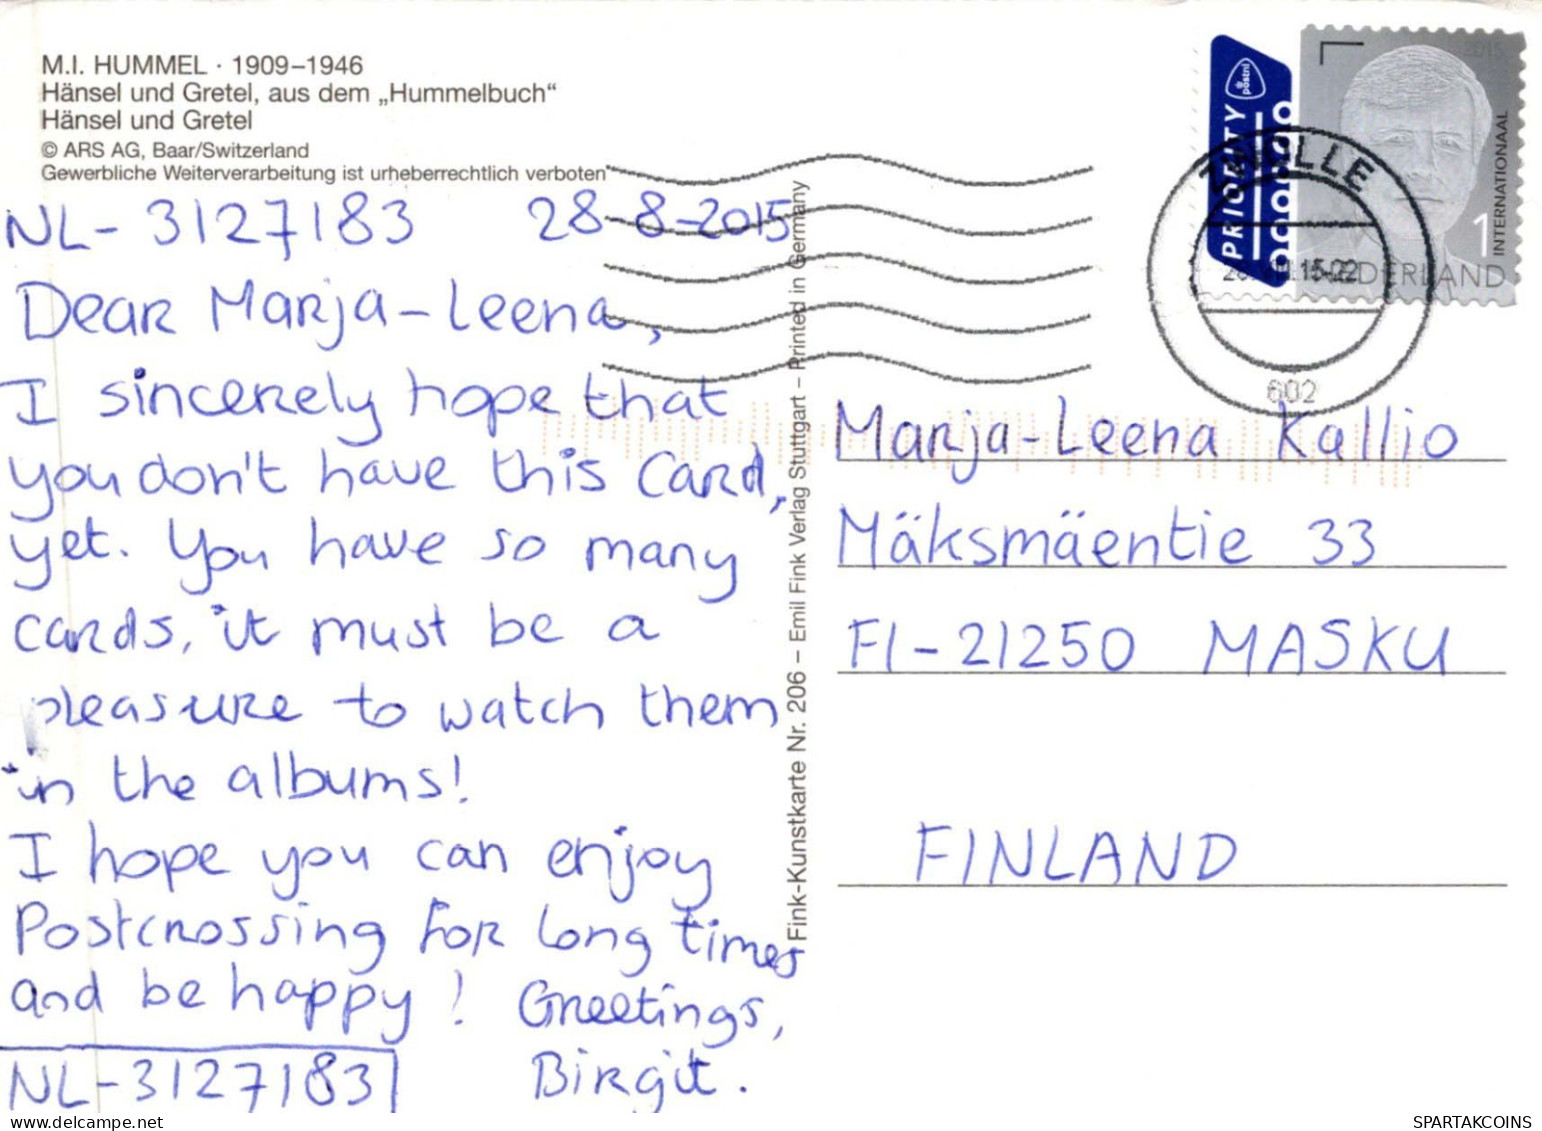 M.I. HUMMEL · 1909–1946
Hänsel und Gretel, aus dem „Hummelbuch“
Hänsel und Gretel
© ARS AG, Baar/Switzerland
Gewerbliche Weiterverarbeitung ist urheberrechtlich verboten
NL-3127183 28-8-2015
Dear Marja-Leena,
I sincerely hope that
you don't have this card,
yet. You have so many
cards, it must be a
pleasure to watch them
in the albums!
I hope you can enjoy
Postcrossing for long times
and be happy! Greetings,
NL-3127183 Birgit.
Fink-Kunstkarte Nr. 206 – Emil Fink Verlag Stuttgart – Printed in Germany
PRIORITY
postnl
2015
INTERNATIONAAL
1
NEDERLAND
ZWOLLE
15-22
602
Marja-Leena Kallio
Mäksmäentie 33
FI-21250 MASKU
FINLAND
SPARTAKCOINS